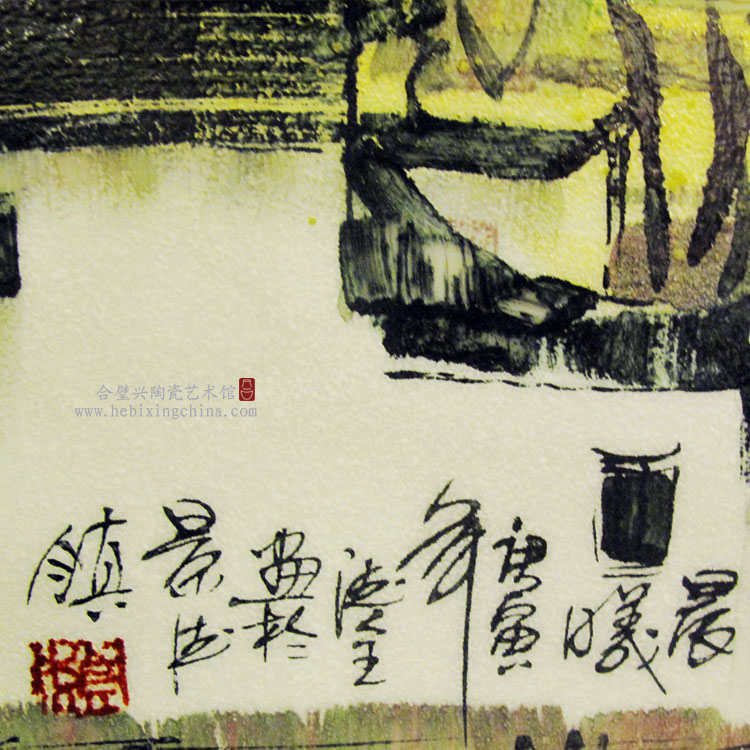 合璧兴陶瓷艺术馆
www.hebixingchina.com
晨曦
庚寅
年
画於
景德
鎮